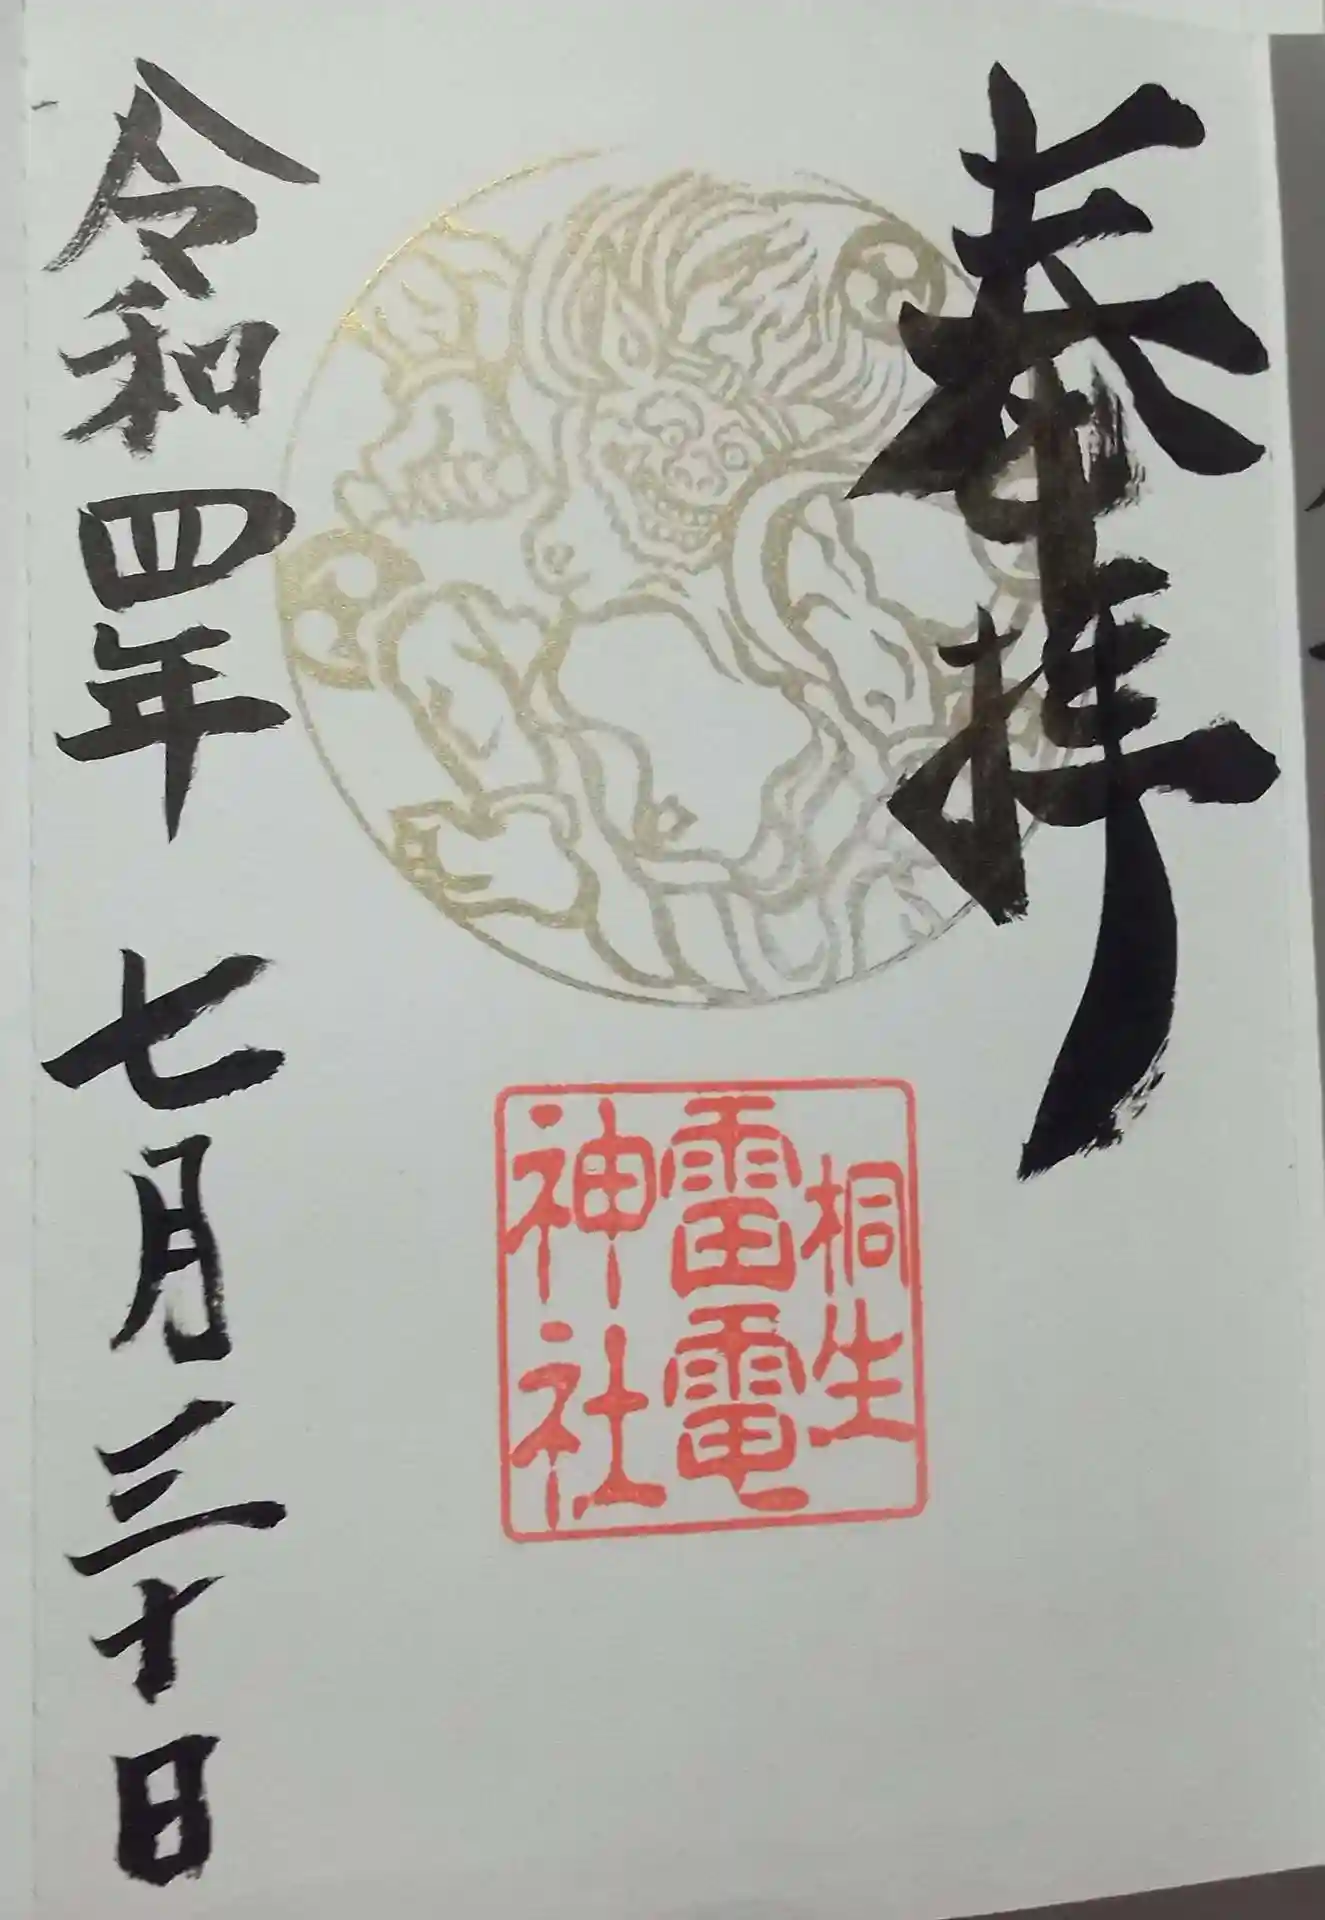 奉拝
桐生
雷電
神社
令和四年 七月三十日